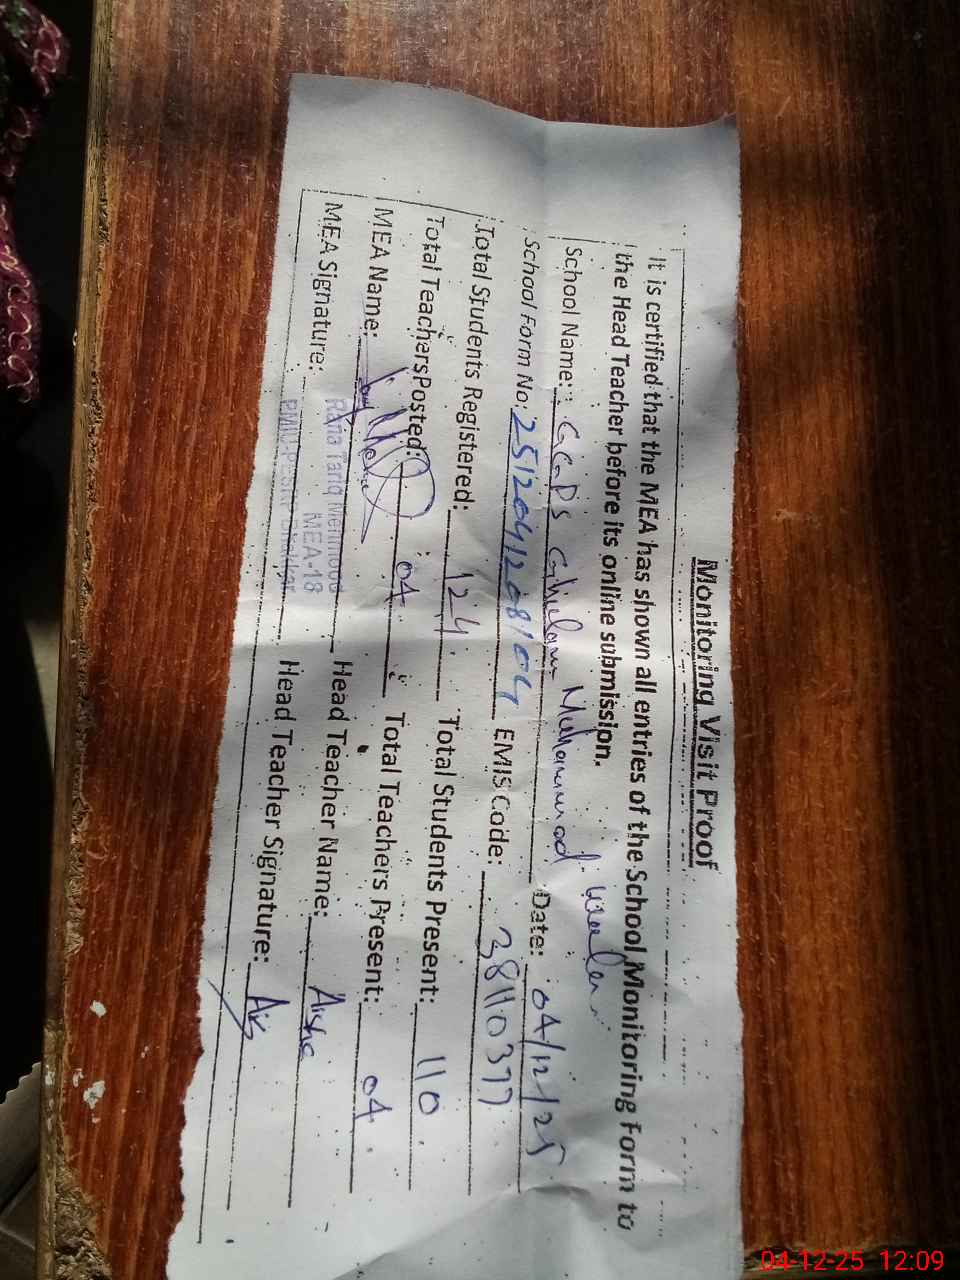 Monitoring Visit Proof
It is certified that the MEA has shown all entries of the School Monitoring Form to
the Head Teacher before its online submission.
School Name: GGPS Ghulam Muhammad Date: 04/12/25
School Form No: 2512041208104 EMIS Code: 38110377
Total Students Registered: 124 Total Students Present: 110
Total Teachers Posted: 04 Total Teachers Present: 04
MEA Name: Head Teacher Name: Aisha
Rana Tariq Mehmood
MEA-18
MEA Signature: Head Teacher Signature:
PMIU-PESRP Bhakkar
04-12-25 12:09